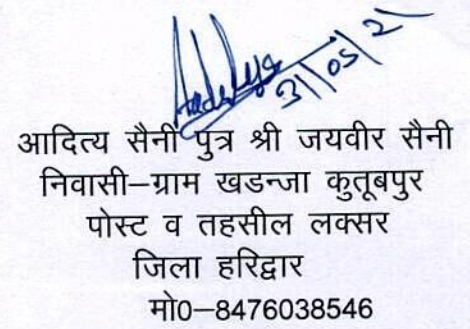 Aaditya
31/05/2
आदित्य सैनी पुत्र श्री जयवीर सैनी
निवासी–ग्राम खडन्जा कुतूबपुर
पोस्ट व तहसील लक्सर
जिला हरिद्वार
मो0–8476038546